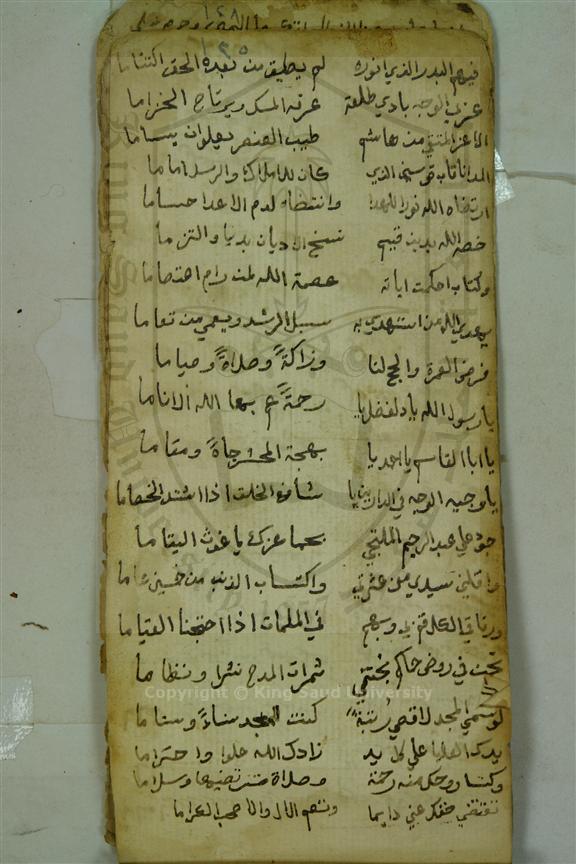 ١٣٥
فيهم البدر الذي انوره لم يطيق من بعده الحق اكتتاما
عربي الوجه بادي طلعة عرقه المسك وير تاج الخزاما
الاعز المنتقى من هاشم طيب العنصر يعلوا ان يساما
المدانا قاب قوسين الذي كان للاملاك والرسل اماما
ارتضاه الله نورا للهدا وانتضاه لدم الاعدا حساما
خصه الله بدين قيم نسخ الاديان بدءا والتزاما
وكتاب احكمت اياته عصمة الله لمن رام اعتصاما
يهدي الله من استهدي به سبل الرشد ويعمي من تعاما
فرض العمرة والحج لنا وزاكة وصلاة وصياما
يا رسول الله يا ذلفضل يا رحمة عم بها الله الاناما
يا ابا القاسم يا احمد يا بهجة المحشر جاة ومقاما
يا وجيه الوجه في الدارين يا شافع الخلق اذا اشتد الخصاما
جد على عبد الرحيم الملتجي بحما عزك يا غوث اليتاما
واقلني سيدي من عثرتي واكتساب الذنب من خمسين عاما
ورفاقي الكل في وسهم في الملمات اذا احتجنا القياما
في روض حماكم يجتني ثمرات المدح نثرا ونظاما
لو سمي المجد لاقصى رتبة كنت للمجد سناء وسناما
يدك العليا على كل يد زادك الله علوا واحتراما
وكسا روحك منه رحمة وصلاة وسلاما
تقتضي حقك عني دايما وتعم الال والاصحاب الكراما
Copyright © King Saud University